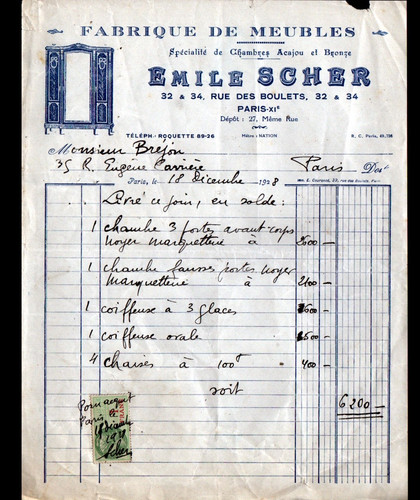 FABRIQUE DE MEUBLES
Spécialité de Chambres Acajou et Bronze
EMILE SCHER
32 & 34, RUE DES BOULETS, 32 & 34
PARIS-XIe
Dépôt : 27, Même Rue
TÉLÉPH. ROQUETTE 89-26 Métro : NATION R. C. Paris,
Monsieur Brejon
35 R. Eugène Carrière Paris Doit
Paris, le 18 Décembre 1928
Livré ce jour, en solde :
1 chambre 3 portes avant corps
noyer marquetterie à 2600 —
1 chambre fausses portes noyer
marquetterie à 2100 —
1 coiffeuse à 3 glaces 600 —
1 coiffeuse ovale 500 —
4 chaises à 100f 400 —
soit 6200 —
Pour acquit
Paris le
18
1928
Scher